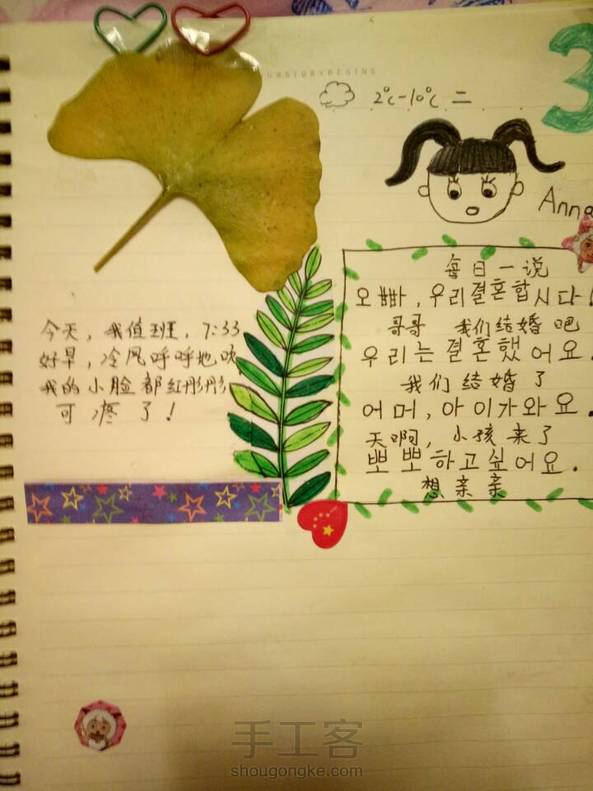 2℃-10℃ 二
3
Anna
每日一说
오빠, 우리결혼합시다!
哥哥 我们结婚吧
우리는결혼했어요.
我们结婚了
어머, 아이가와요.
天啊, 小孩来了
뽀뽀하고싶어요.
想亲亲
今天, 我值班, 7:33
好早, 冷风呼呼地吹
我的小脸都红彤彤
可疼了!
手工客
shougongke.com